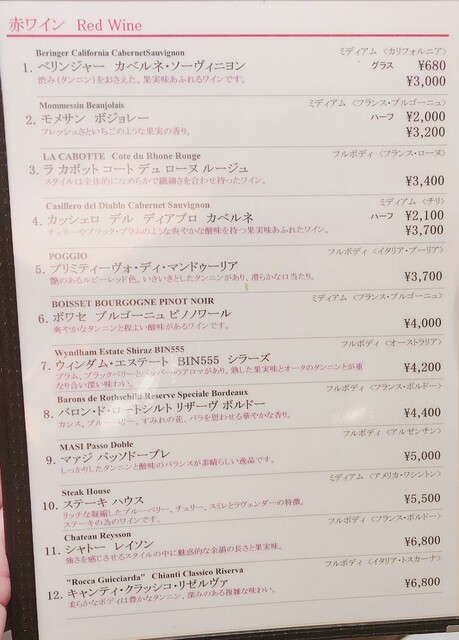 赤ワイン Red Wine
Beringer California CabernetSauvignon ミディアム〈カリフォルニア〉
1. ベリンジャー カベルネ・ソーヴィニヨン グラス ¥680
渋み(タンニン)をおさえた、果実味あふれるワインです。 ¥3,000
Mommessin Beaujolais ミディアム〈フランス・ブルゴーニュ〉
2. モメサン ボジョレー ハーフ ¥2,000
フレッシュさといちごのような果実の香り。 ¥3,200
LA CABOTTE Cote du Rhone Rouge フルボディ〈フランス・ローヌ〉
3. ラ カボット コート デュ ローヌ ルージュ
スタイルは全体的になめらかで繊細さを合わせ持ったワイン。 ¥3,400
Casillero del Diablo Cabernet Sauvignon ミディアム〈チリ〉
4. カッシェロ デル ディアブロ カベルネ ハーフ ¥2,100
チェリーやブラック・プラムのような爽やかな酸味を持つ果実味あふれたワイン。 ¥3,700
POGGIO フルボディ〈イタリア・プーリア〉
5. プリミティーヴォ・ディ・マンドゥーリア
艶のあるルビーレッド色。いきいきとしたタンニンがあり、滑らかな口当たり。 ¥3,700
BOISSET BOURGOGNE PINOT NOIR ミディアム〈フランス・ブルゴーニュ〉
6. ボワセ ブルゴーニュ ピノノワール
爽やかなタンニンと程よい酸味があるワインです。 ¥4,000
Wyndham Estate Shiraz BIN555 フルボディ〈オーストラリア〉
7. ウィンダム・エステート BIN555 シラーズ
プラム、ブラックベリーとペッパーのアロマがあり、熟した果実味とオークのタンニンとが重
なり合い深い味わい。 ¥4,200
Barons de Rothschild Reserve Speciale Bordeaux フルボディ〈フランス・ボルドー〉
8. バロン・ド・ロートシルト リザーヴ ボルドー
カシス、ブルーベリー、すみれの花、バラを思わせる華やかな香り。 ¥4,400
MASI Passo Doble フルボディ〈アルゼンチン〉
9. マァジ パッソドーブレ
しっかりしたタンニンと酸味のバランスが素晴らしい逸品です。 ¥5,000
Steak House ミディアム〈アメリカ・ワシントン〉
10. ステーキ ハウス
リッチな凝縮したブルーベリー、チェリー、スミレとラヴェンダーの特徴。 ¥5,500
ステーキの為のワインです。
Chateau Reysson フルボディ〈フランス・ボルドー〉
11. シャトー レイソン
強さを感じさせるスタイルの中に魅惑的な余韻の長さと果実味。 ¥6,800
"Rocca Guicciarda" Chianti Classico Riserva フルボディ〈イタリア・トスカーナ〉
12. キャンティ・クラッシコ・リゼルヴァ
柔らかなボディは豊かなタンニン、深みのある複雑な味わい。 ¥6,800